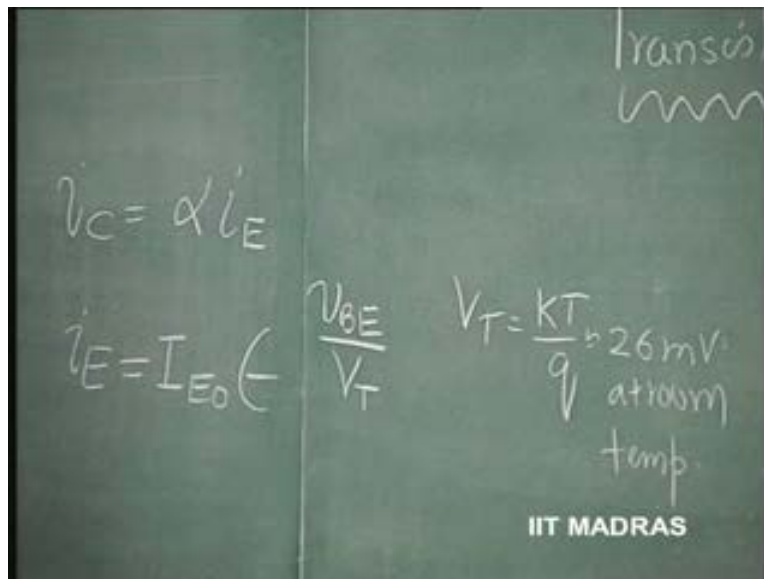 Transis
i_C = α i_E
i_E = I_E0 e v_BE/V_T
V_T = KT/q = 26mV
at room
temp.
IIT MADRAS